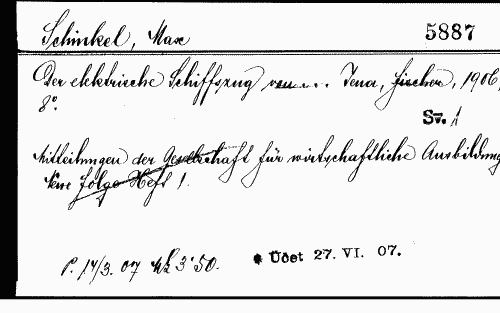 Schinkel, Max 5887
Der elektrische Schiffszug von... Jena, Fischer, 1906,
8°.
Sv. 1
Mitteilungen der Gesellschaft für wirtschaftliche Ausbildung
Neue Folge Heft 1.
P. 14/3. 07 Mk 3'50. * Účet 27. VI. 07.